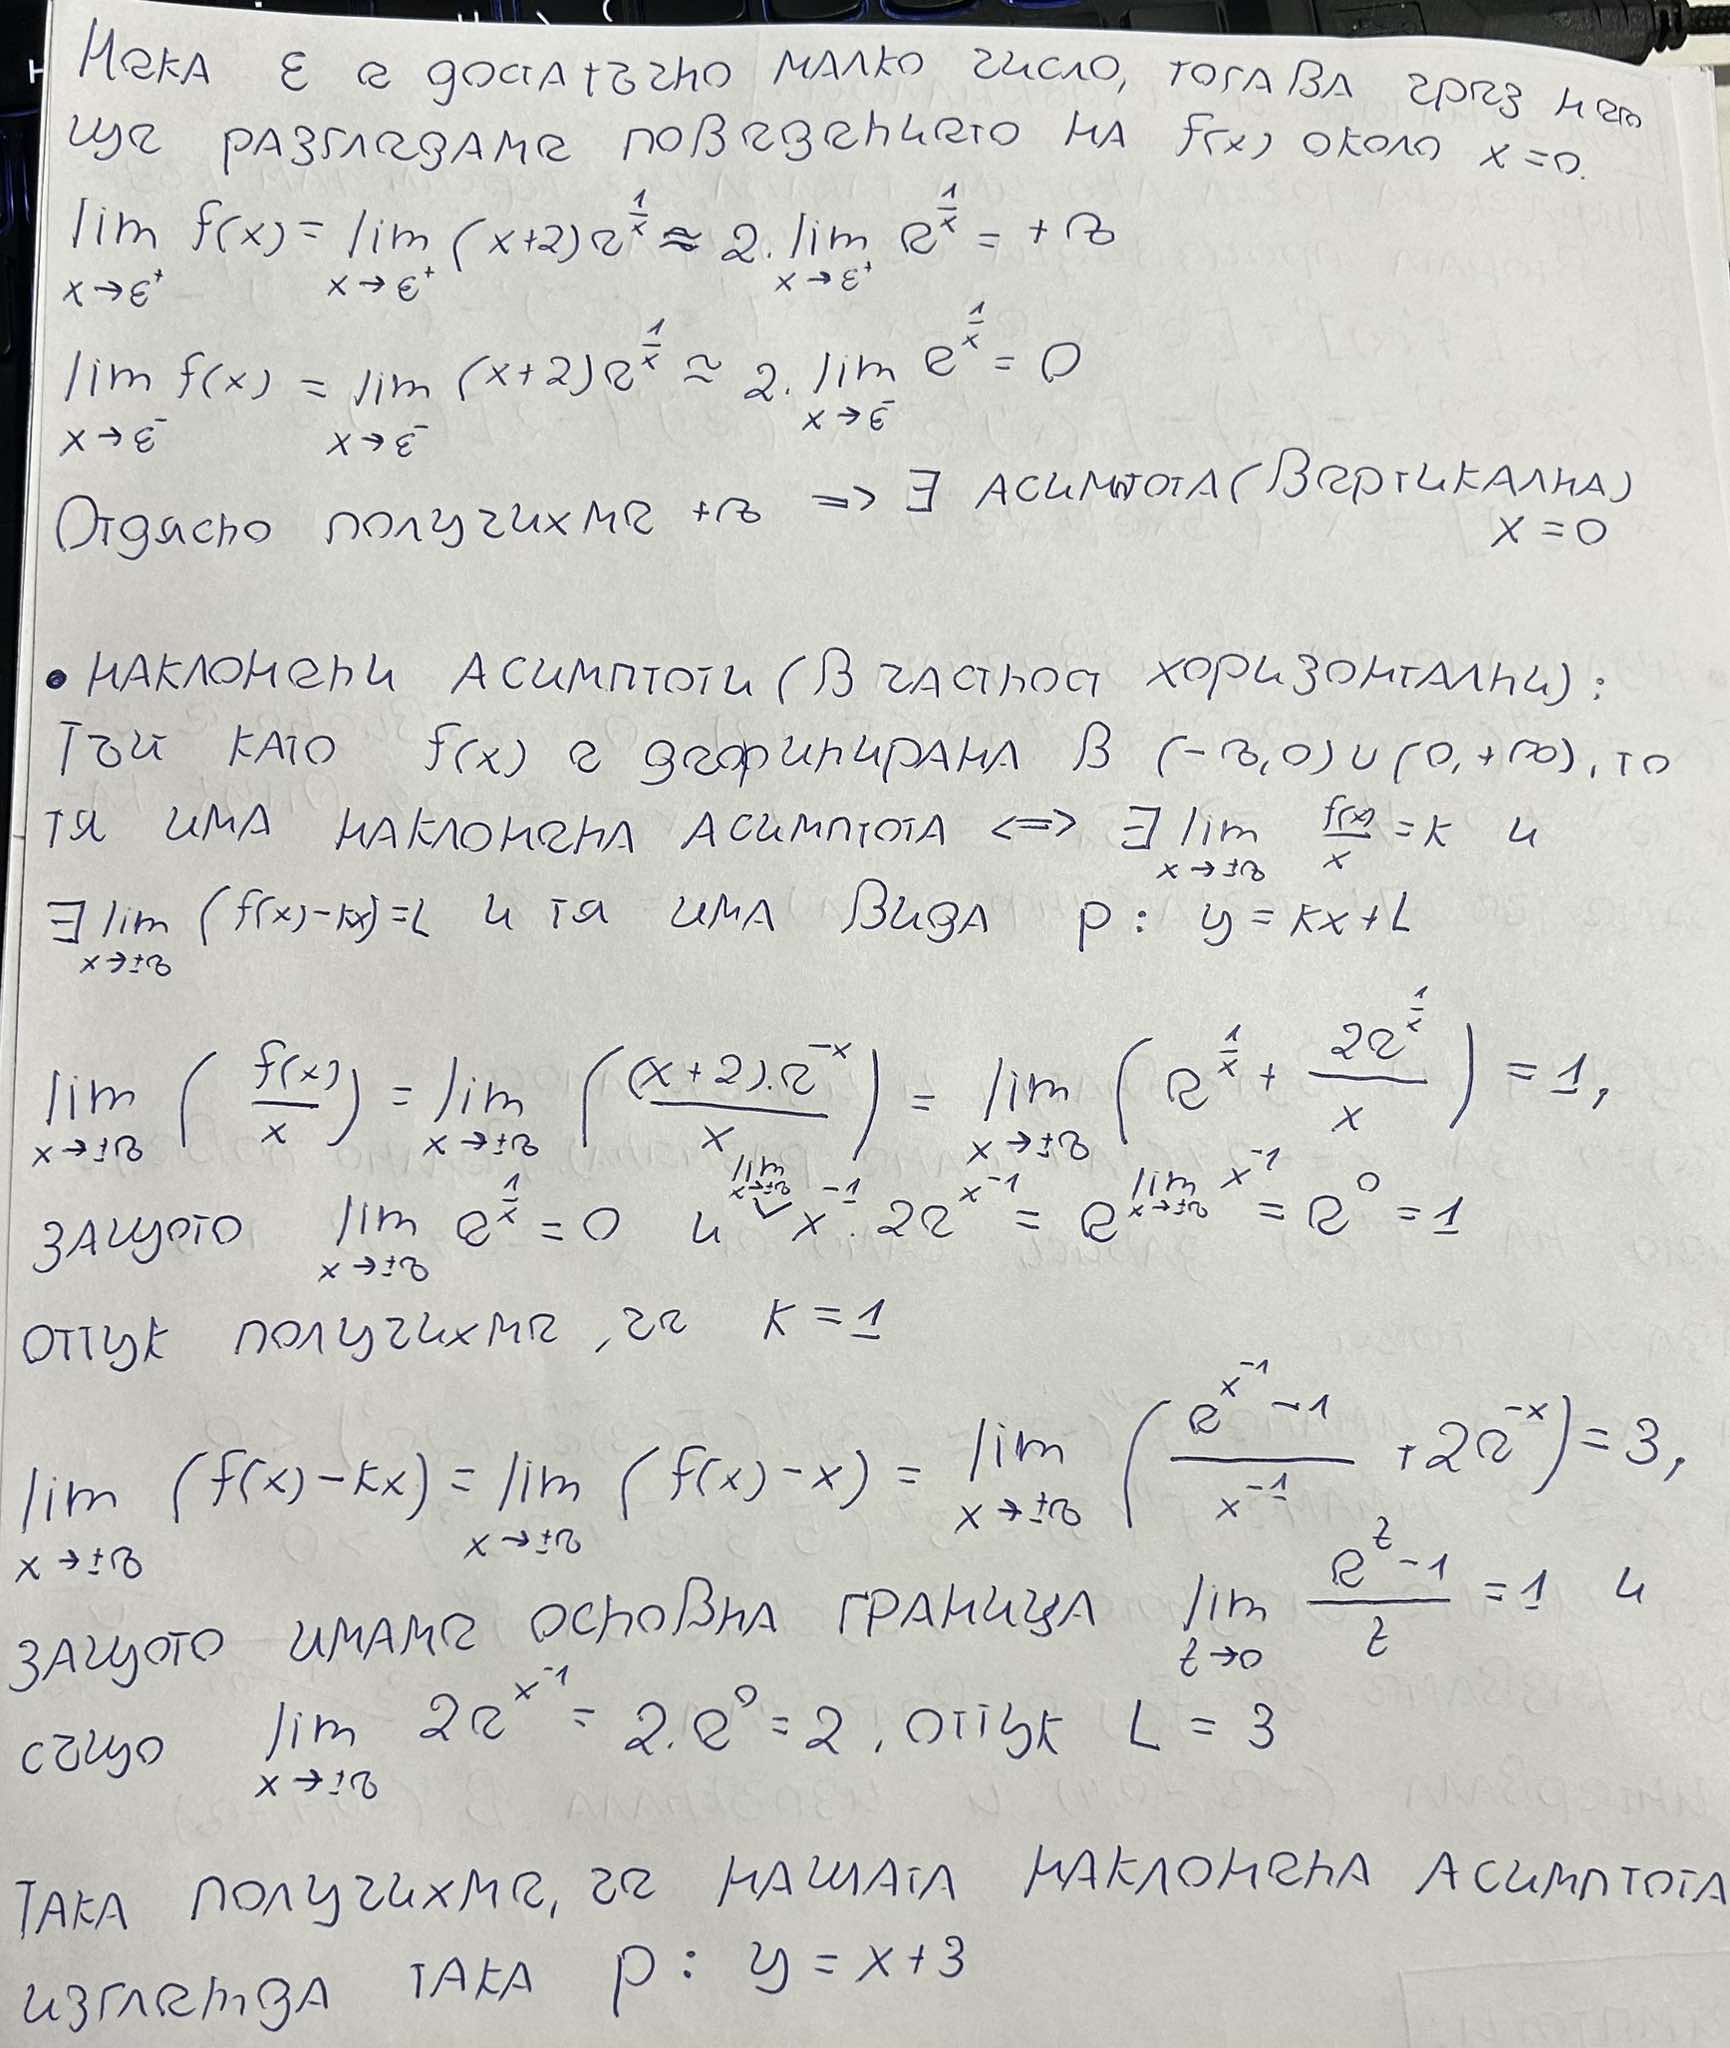 Нека ε е достатъчно малко число, тогава чрез нея
ще разгледаме поведението на f(x) около x=0.
lim_{x→ε⁺} f(x) = lim_{x→ε⁺} (x+2)e^{1/x} ≈ 2. lim_{x→ε⁺} e^{1/x} = +∞
lim_{x→ε⁻} f(x) = lim_{x→ε⁻} (x+2)e^{1/x} ≈ 2. lim_{x→ε⁻} e^{1/x} = 0
Отдясно получихме +∞ => ∃ асимптота (вертикална)
x=0
• наклонени асимптоти (в частност хоризонтални):
Тъй като f(x) е дефинирана в (-∞,0)∪(0,+∞), то
тя има наклонена асимптота <=> ∃ lim_{x→±∞} f(x)/x = k и
∃ lim_{x→±∞} (f(x)-kx)=L и тя има вида p: y=kx+L
lim_{x→±∞} (f(x)/x) = lim_{x→±∞} ((x+2).e^{-x}/x) = lim_{x→±∞} (e^{1/x} + 2e^{1/x}/x) = 1,
защото lim_{x→±∞} e^{1/x} = 0 и lim_{x→±∞} x^{-1}.2e^{x^{-1}} = e^{lim_{x→±∞} x^{-1}} = e^0 = 1
оттук получихме, че k=1
lim_{x→±∞} (f(x)-kx) = lim_{x→±∞} (f(x)-x) = lim_{x→±∞} ((e^{x^{-1}}-1)/x^{-1} + 2e^{-x}) = 3,
защото имаме основна граница lim_{z→0} (e^z-1)/z = 1 и
също lim_{x→±∞} 2e^{x^{-1}} = 2.e^0 = 2, оттук L = 3
Така получихме, че нашата наклонена асимптота
изглежда така p: y = x+3